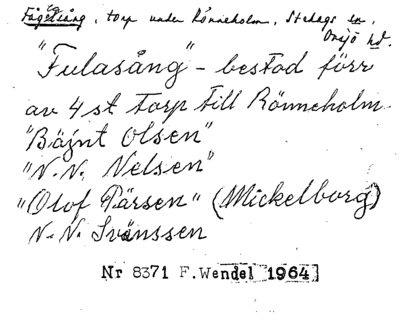 Fågelsång, torp under Rönneholm, Stehags sn,
Onsjö hd.
"Fulasång" - bestod förr
av 4 st torp till Rönneholm.
"Bäjnt Olsen"
"N.N. Nelsen"
"Olof Pärsen" (Mickelborg)
N.N. Svänssen
Nr 8371 F.Wendel 1964